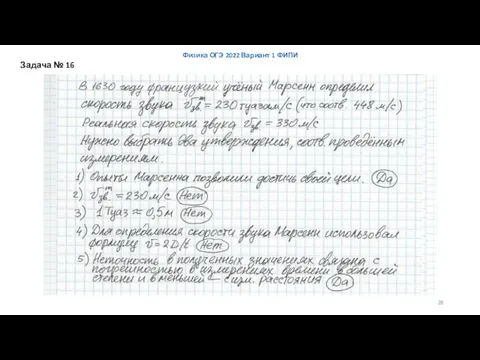 Физика ОГЭ 2022 Вариант 1 ФИПИ
Задача № 16
В 1630 году французкий учёный Марсенн определил
скорость звука Vзв.^m = 230 туазам/с (что соотв. 448 м/с)
Реальная скорость звука Vзв = 330 м/с
Нужно выбрать два утверждения, соотв. проведённым
измерениям.
1) Опыты Марсенна позволили достичь своей цели. Да
2) Vзв.^m = 230 м/с Нет
3) 1 Туаз ≈ 0,5 м Нет
4) Для определения скорости звука Марсенн использовал
формулу V = 2D/t Нет
5) Неточность в полученных значениях связана с
погрешностью в измерениях времени в большей
степени и в меньшей – с изм. расстояния Да